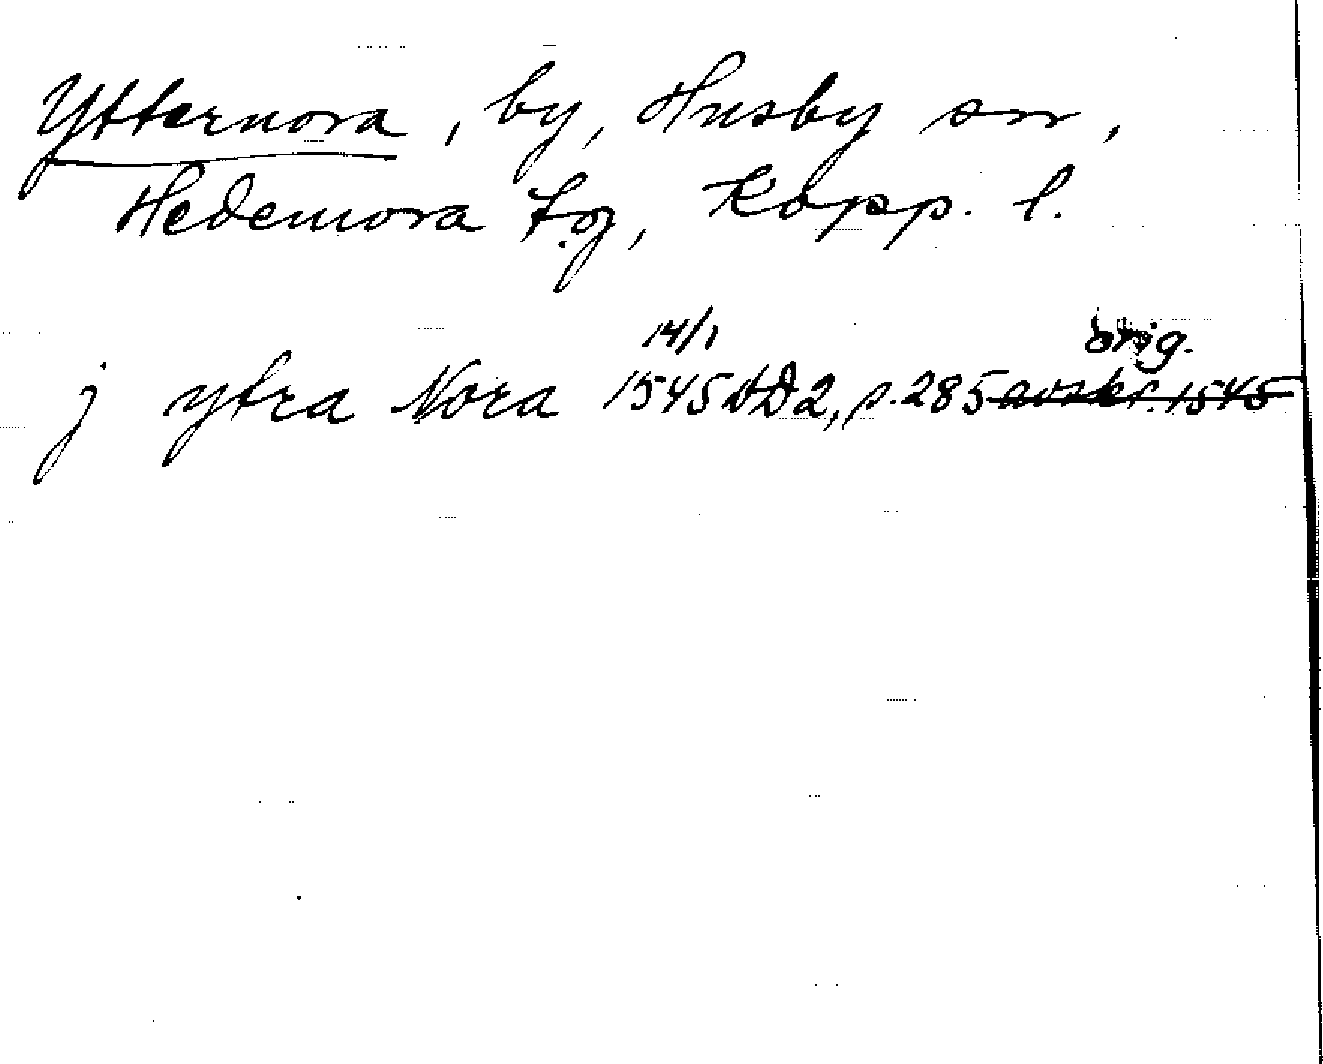 Ytternora, by, Husby sn,
Hedemora tg, Kopp. l.
14/1 orig.
j ytra Nora 1545 DD2, s. 285 avskr. 1545